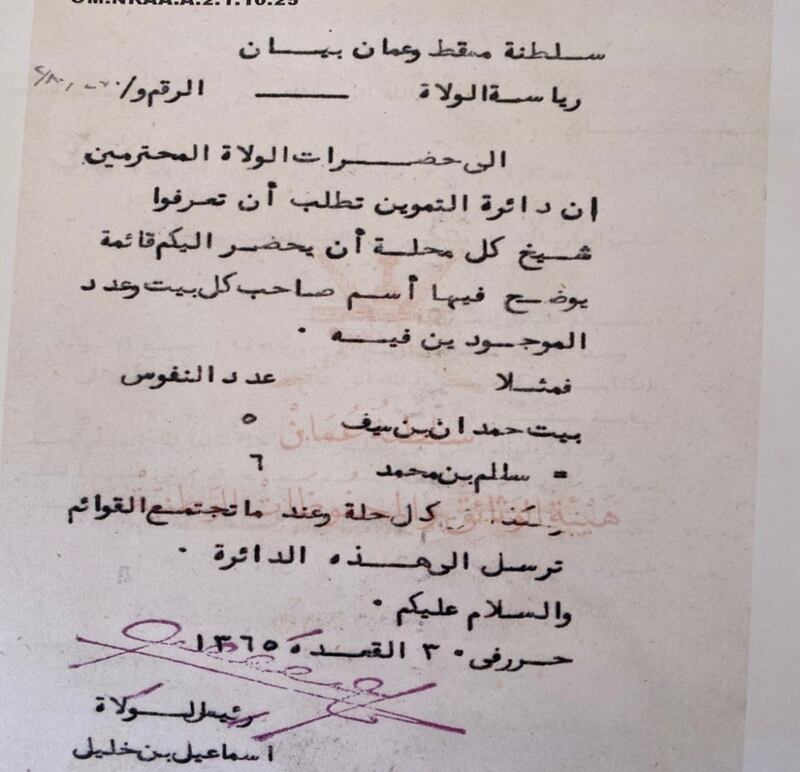 OM.NRAA.A.2.1.10.25
سلطنة مسقط وعمان بيان
رياسة الولاة ــــــ الرقم و/
الى حضرات الولاة المحترمين
ان دائرة التموين تطلب أن تعرفوا
شيخ كل محلة أن يحضر اليكم قائمة
يوضح فيها أسم صاحب كل بيت وعدد
الموجودين فيه .
فمثلا عدد النفوس
بيت حمدان بن سيف ٥
= سالم بن محمد ٦
كل حلة وعند ما تجتمع القوائم
ترسل الى هذه الدائرة .
والسلام عليكم .
حرر فى ٣٠ القعدة ١٣٦٥
رئيس الولاة
اسماعيل بن خليل
سلطنة عمان
هيئة الوثائق والمحفوظات الوطنية